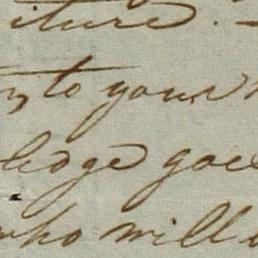 iture. —
to your
ledge goe
who will